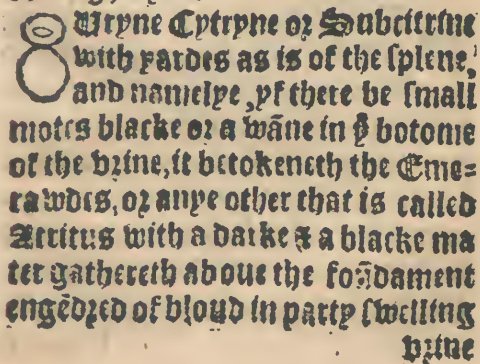 8 Uryne Cytryne or Subcitrine
with yardes as is of the splene,
and namelye, yf there be small
motes blacke or a wāne in yͤ botome
of the vrine, it betokeneth the Eme=
rawdes, or anye other that is called
with a darke & a blacke ma
ter gathereth aboue the foūdament
engēdred of bloud in party swelling
vrine